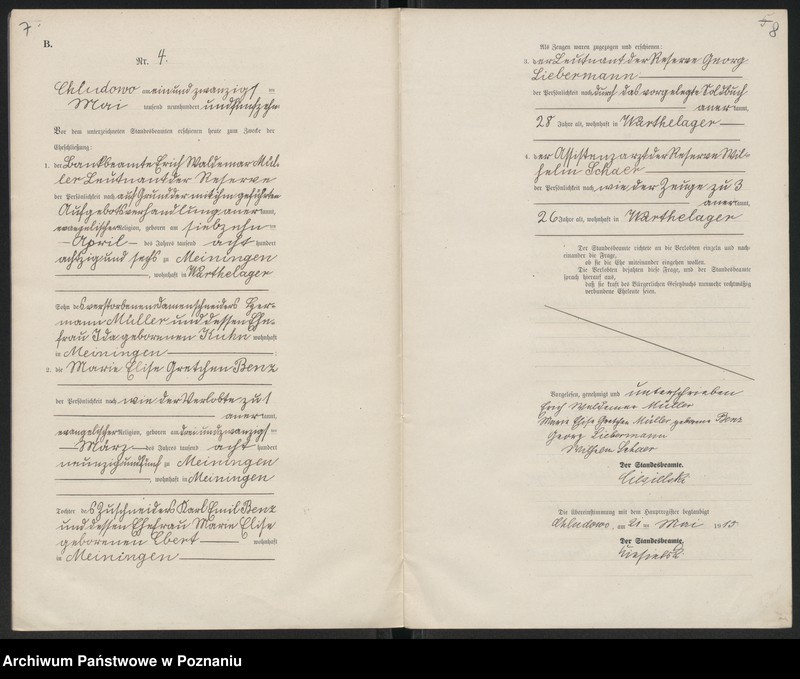 7
B.
Nr. 4.
Chludowo am einund zwanzigs ten
Mai tausend neunhundert undfünfzehn
Vor dem unterzeichneten Standesbeamten erschienen heute zum Zwecke der
Eheschließung:
1. der Bankbeamte Erich Waldemar Mül-
ler Leutnant der Reserve
der Persönlichkeit nach auf Grund der mit ihm geführten
Aufgebotsverhandlung aner kannt,
evangelischer Religion, geboren am siebzehn ten
April des Jahres tausend acht hundert
achtzig und sechs zu Meiningen
, wohnhaft in Warthelager
Sohn des verstorbenen Damenschneiders Her-
mann Müller und dessen Ehe-
frau Ida geborenen Kuhn wohnhaft
in Meiningen
2. die Marie Elise Gretchen Benz
der Persönlichkeit nach wie der Verlobte zu 1
aner kannt,
evangelischer Religion, geboren am dreiundzwanzigs ten
März des Jahres tausend acht hundert
neunzig und fünf zu Meiningen
, wohnhaft in Meiningen
Tochter des Zuschneiders Karl Emil Benz
und dessen Ehefrau Marie Elise
geborenen Ebert wohnhaft
in Meiningen
8
Als Zeugen waren zugezogen und erschienen:
3. der Leutnant der Reserve Georg
Liebermann
der Persönlichkeit nach durch das vorgelegte Soldbuch
aner kannt,
28 Jahre alt, wohnhaft in Warthelager
4. der Assistenzarzt der Reserve Wil-
helm Schaer
der Persönlichkeit nach wie der Zeuge zu 3
aner kannt,
26 Jahre alt, wohnhaft in Warthelager
Der Standesbeamte richtete an die Verlobten einzeln und nach-
einander die Frage,
ob sie die Ehe miteinander eingehen wollen.
Die Verlobten bejahten diese Frage, und der Standesbeamte
sprach hierauf aus,
daß sie kraft des Bürgerlichen Gesetzbuchs nunmehr rechtmäßig
verbundene Eheleute seien.
Vorgelesen, genehmigt und unterschrieben
Erich Waldemar Müller
Marie Elise Gretchen Müller, geborene Benz
Georg Liebermann
Wilhelm Schaer
Der Standesbeamte.
Die Übereinstimmung mit dem Hauptregister beglaubigt
Chludowo, am 21 ten Mai 1915
Der Standesbeamte.
Archiwum Państwowe w Poznaniu